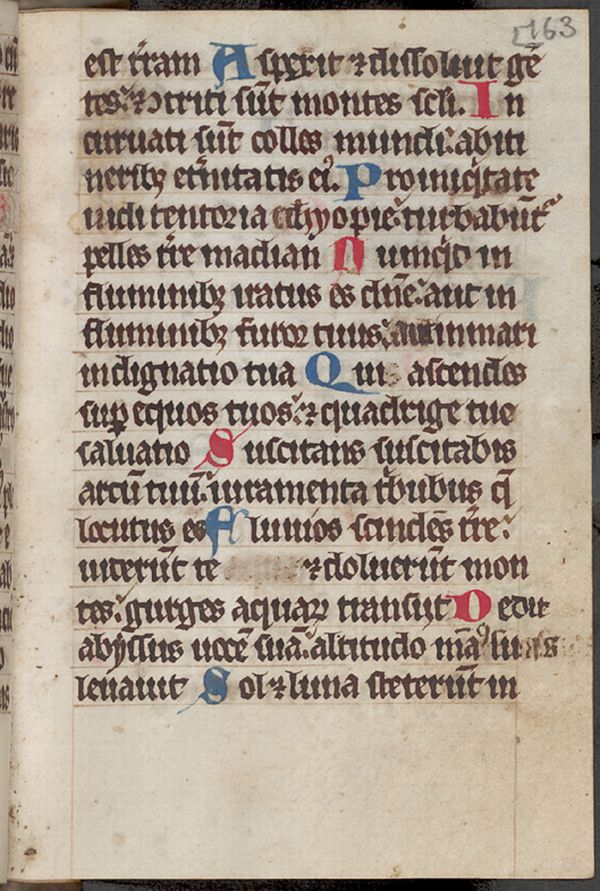 163
est t̄ram Aspexit ⁊ dissoluit gē
tes: ⁊ ꝯtriti sūt montes scli. In
curuati sūt colles mundi: ab iti
neribꝫ et̄nitatis ei⁹. Pro iniq̇tate
uidi tentoria ethyopie: turbabūt᷑
pelles t̄re madian Numq̇d in
fluminibꝫ iratus es dn̄e: aut in
fluminibꝫ furor tuus: aut in mari
indignatio tua Qui ascendes
suꝑ equos tuos: ⁊ quadrige tue
saluatio Suscitans suscitabis
arcū tuū: iuramenta t̄bubus q̄
locutus es Fluuios scindēs t̄re:
uiderūt te ⁊ doluerūt mon
tes: gurges aquaꝝ transijt Dedit
abyssus uocē suā: altitudo man⁹ suas
leuauit Sol ⁊ luna steterūt in